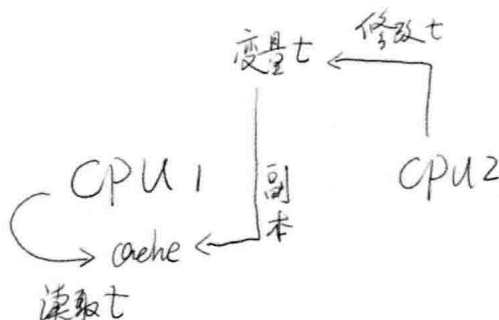 修改t
变量t
CPU1
副本
CPU2
cache
读取t